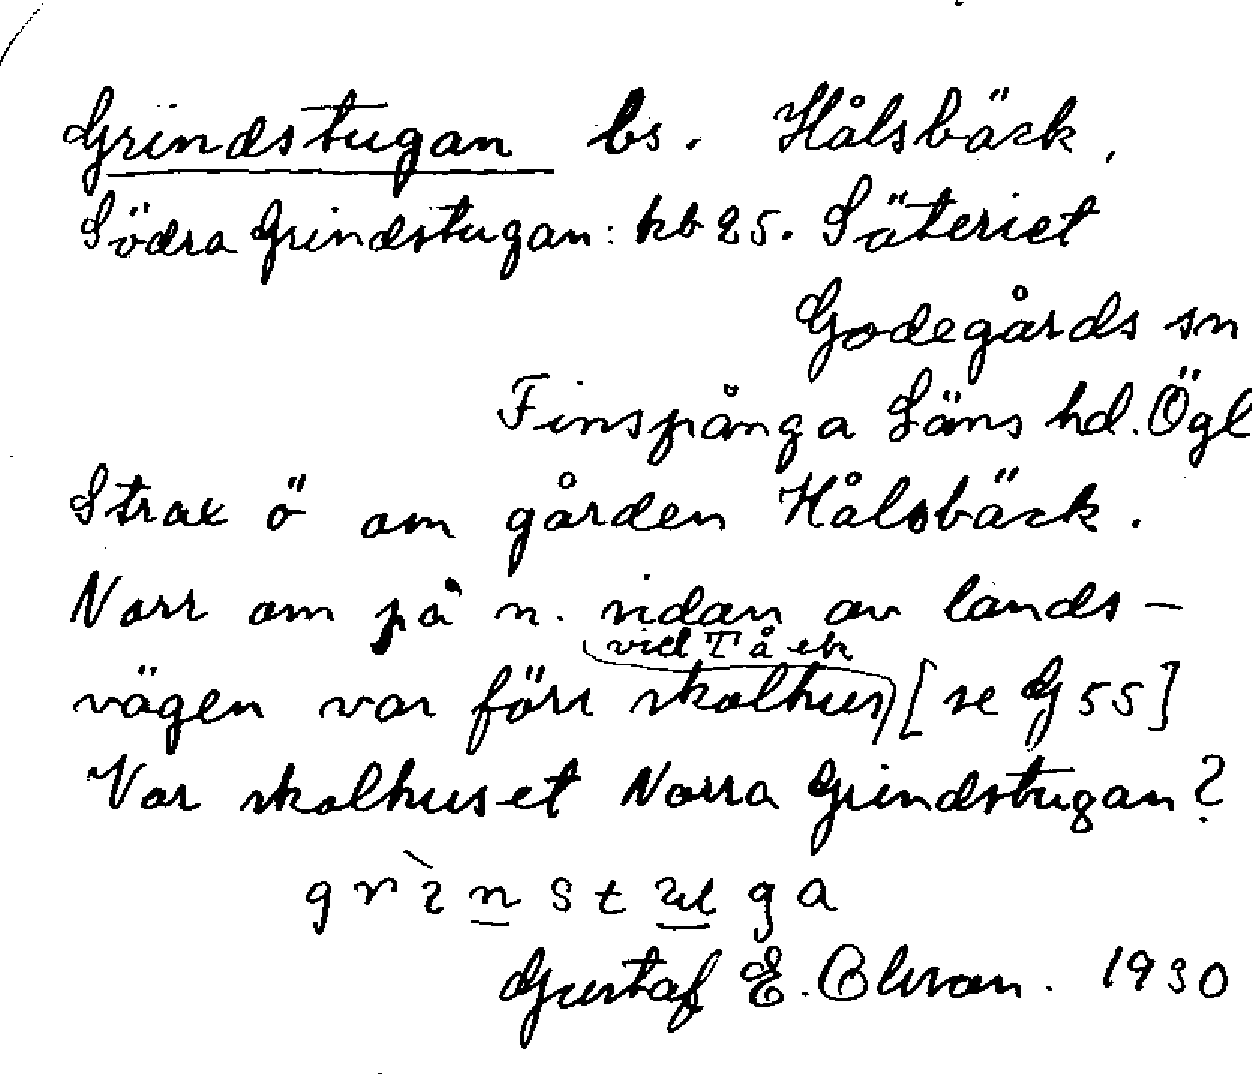 Grindstugan bs. Hålsbäck,
Södra Grindstugan: kb 25. Säteriet
Godegårds sn
Finspånga Läns hd. Ögl
Strax ö om gården Hålsbäck.
Norr om på n. sidan av lands-
vägen var förr skolhus [se G 55]
vid Tåek
Var skolhuset Norra Grindstugan?
grìnstuga
Gustaf E. Olsson. 1930